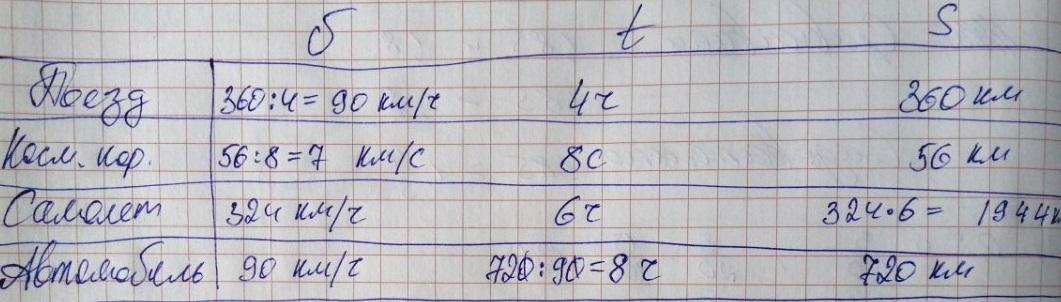 б t S
Поезд 360:4= 90 км/ч 4ч 360 км
Косм. кор. 56:8=7 км/с 8с 56 км
Самолет 324 км/ч 6ч 324•6= 1944к
Автомобиль 90 км/ч 720:90=8 ч 720 км